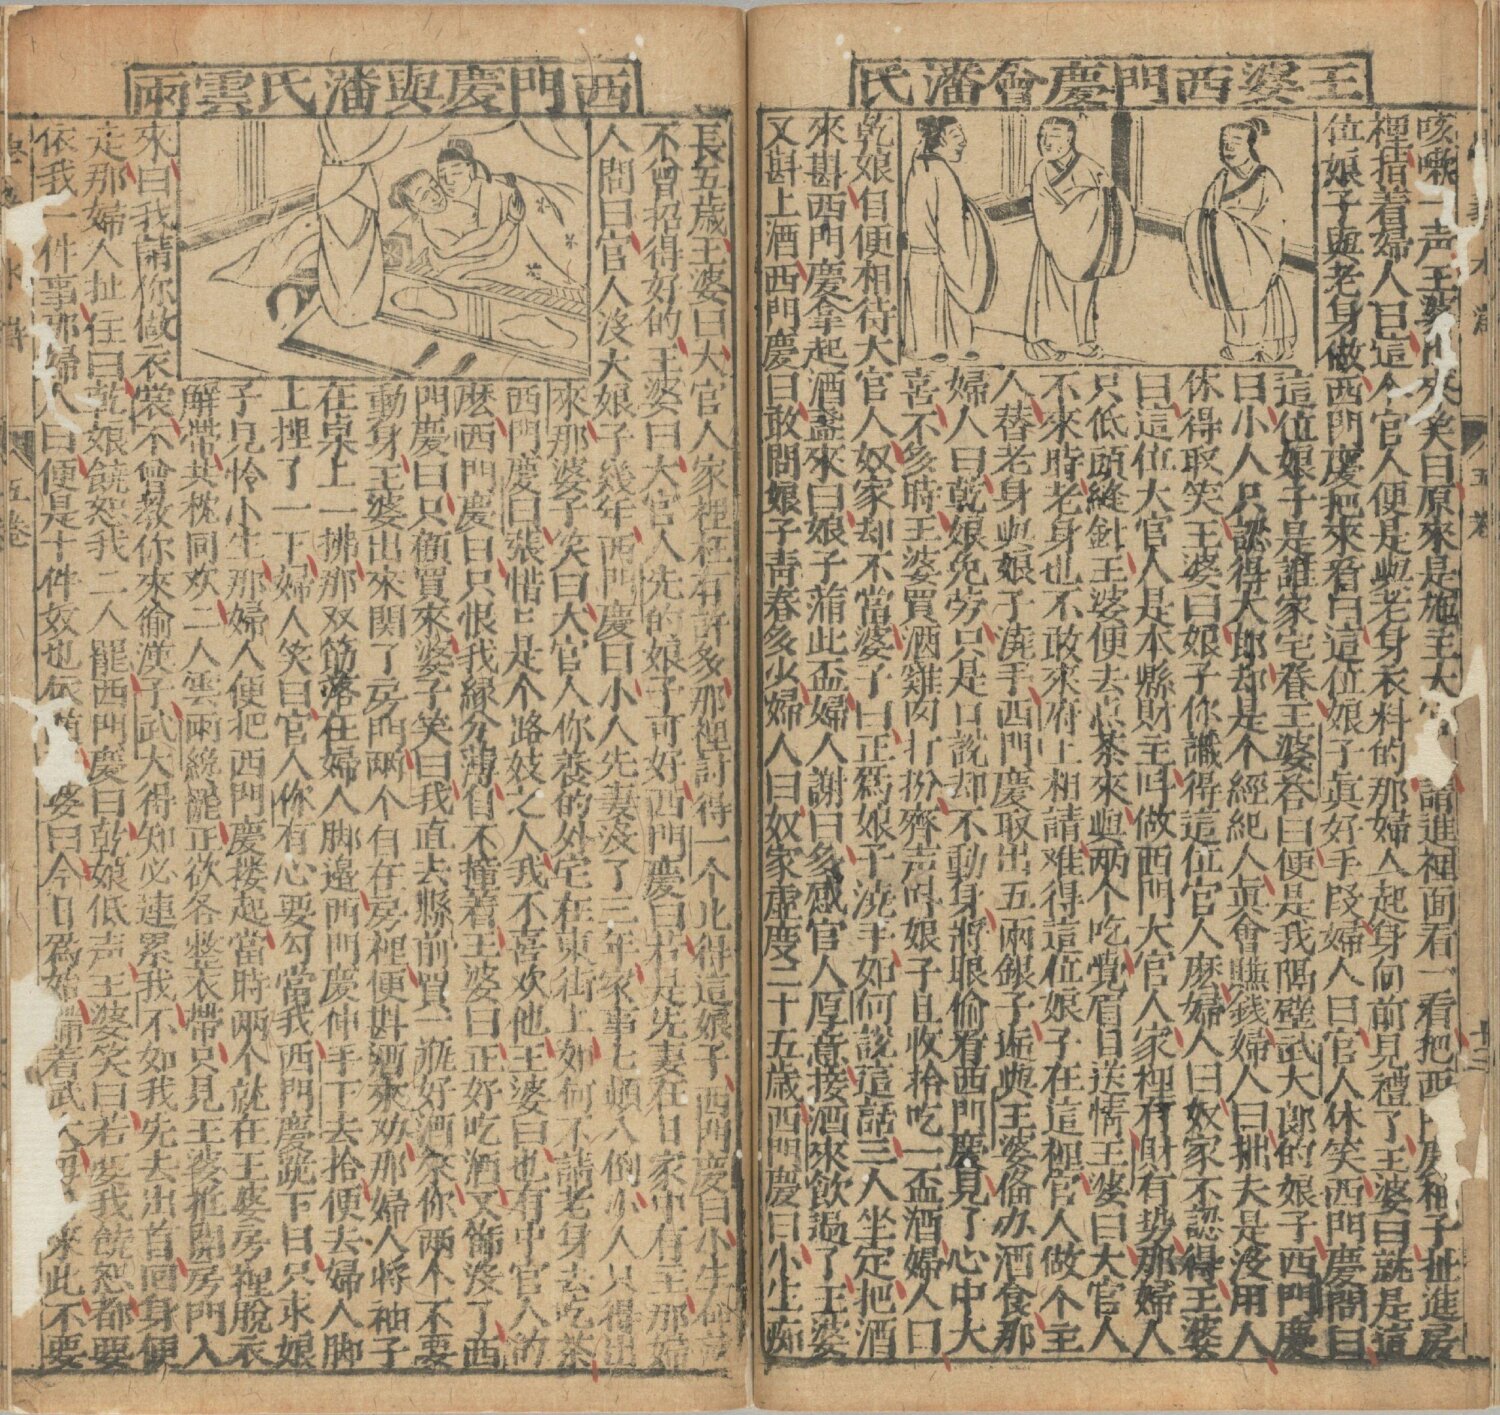 王婆西門慶會潘氏
咳嗽一声王婆出來笑曰原來是施主大官請進裡面看一看把西門慶袖子扯進房
裡指着婦人曰這个官人便是與老身衣料的那婦人起身向前見禮了王婆曰就是這
位娘子與老身做西門慶把來看曰這位娘子眞好手段婦人曰官人休笑西門慶問曰
這位娘子是誰家宅眷王婆答曰便是我隔壁武大郎的娘子西門慶
曰小人只認得大郎却是个經紀人眞會賺錢婦人曰拙夫是沒用人
休得取笑王婆曰娘子你識得這位官人麽婦人曰奴家不認得王婆
曰這位大官人是本縣財主呌做西門大官人家裡有財有势那婦人
只低頭縫針王婆便去点茶來與两个吃覺眉目送情王婆曰大官人
不來時老身也不敢來府上相請难得這位娘子在這裡官人做个主
人替老身與娘子澆手西門慶取出五兩銀子逓與王婆俻办酒食那
婦人曰乾娘免劳只是口說却不動身將眼偷看西門慶見了心中大
喜不多時王婆買酒雞肉打扮齊声呌娘子且收拾吃一盃酒婦人曰
乾娘自便相待大官人奴家却不當婆子曰正爲娘子澆手如何說這話三人坐定把酒
來斟西門慶拿起酒盞來曰娘子滿此盃婦人謝曰多感官人厚意接酒來飲過了王婆
又斟上酒西門慶曰敢問娘子青春多少婦人曰奴家虛度二十五歲西門慶曰小生痴
五卷
十三
西門慶與潘氏雲雨
長五歲王婆曰大官人家裡枉有許多那裡討得一个比得這娘子西門慶曰小生命薄
不曾招得好的王婆曰大官人先的娘子可好西門慶曰若是先妻在日家中有主那婦
人問曰官人沒大娘子幾年西門慶曰小人先妻沒了三年家事七顛八倒小人只得出
來那婆子笑曰大官人你養的外宅在東街上如何不請老身去吃茶
西門慶曰張惜〻是个路妓之人我不喜欢他王婆曰也有中官人的
麽西門慶曰只恨我緣分薄自不撞着王婆曰正好吃酒又篩沒了西
門慶曰只顧買來婆子笑曰我直去縣前買一瓶好酒來你两个不要
動身王婆出來関了房門两个自在房裡便斟酒來劝那婦人將袖子
在桌上一拂那双筯落在婦人脚邉西門慶伸手下去拾便去婦人脚
上捏了一下婦人笑曰官人你有心要勾當我西門慶跪下曰只求娘
子見怜小生那婦人便把西門慶搂起當時两个就在王婆房裡脫衣
解帶共枕同欢二人雲雨纔罷正欲各整衣帶只見王婆推開房門入
來曰我請你做衣裳不曾教你來偷漢子武大得知必連累我不如我先去出首回身便
走那婦人扯住曰乾娘饒恕我二人罷西門慶曰乾娘低声王婆笑曰若要我饒恕都要
依我一件事那婦人曰便是十件奴也依婆曰今日爲始瞞着武大來此不要
五卷